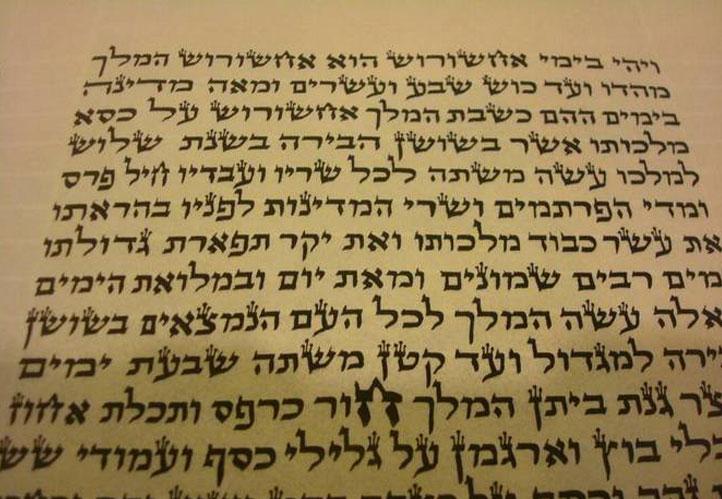 ויהי בימי אחשורוש הוא אחשורוש המלך
מהדו ועד כוש שבע ועשרים ומאה מדינה
בימים ההם כשבת המלך אחשורוש על כסא
מלכותו אשר בשושן הבירה בשנת שלוש
למלכו עשה משתה לכל שריו ועבדיו חיל פרס
ומדי הפרתמים ושרי המדינות לפניו בהראתו
את עשר כבוד מלכותו ואת יקר תפארת גדולתו
מים רבים שמונים ומאת יום ובמלואת הימים
אלה עשה המלך לכל העם הנמצאים בשושן
ירה למגדול ועד קטן משתה שבעת ימים
צר גנת ביתן המלך חור כרפס ותכלת אחוז
בלי בוץ וארגמן על גלילי כסף ועמודי שש